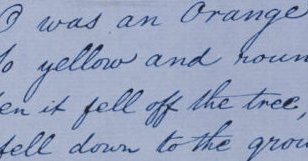 I was an Orange
So yellow and roun
en it fell off the tree,
fell down to the grou